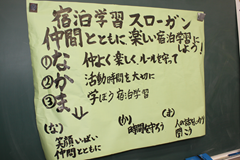 宿泊学習スローガン
仲間とともに楽しい宿泊学習にしよう!
①な 仲よく楽しくルールを守って
②か 活動時間を大切に
③ま 学ぼう宿泊学習
(な)
笑顔いっぱい
仲間とともに
(か)
時間を守ろう
(ま)
人の話をしっかり
聞こう